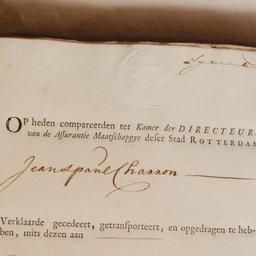 OP heden compareerden ter Kamer der DIRECTEUR
van de Assurantie Maatschappye deser Stad ROTTERDAM
Jean & paul Charron
Verklaarde gecedeert, getransporteert, en opgedragen te heb-
ben, mits dezen aan